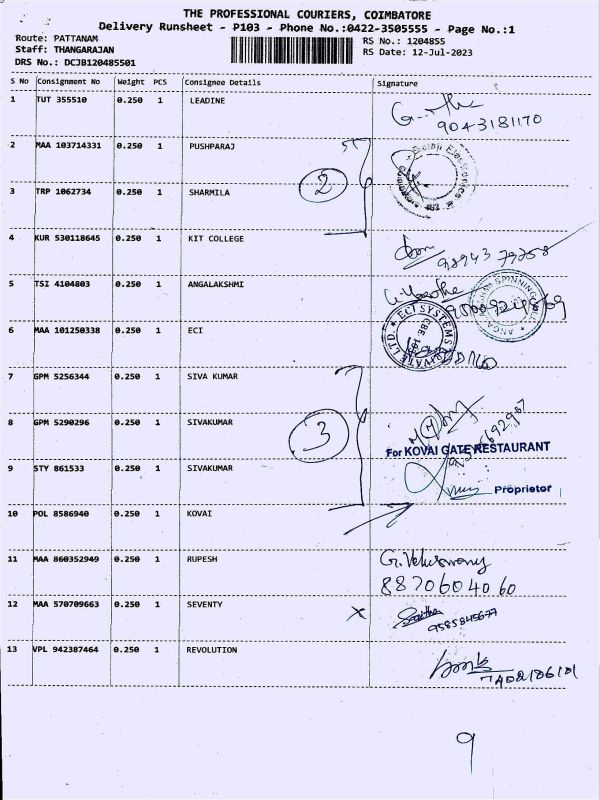 THE PROFESSIONAL COURIERS, COIMBATORE
Delivery Runsheet - P103 - Phone No.:0422-3505555 - Page No.:1
Route: PATTANAM
RS No.: 1204855
Staff: THANGARAJAN
RS Date: 12-Jul-2023
DRS No.: DCJB120485501
S No Consignment No Weight PCS Consignee Details Signature
1 TUT 355510 0.250 1 LEADINE
9043181170
2 MAA 103714331 0.250 1 PUSHPARAJ
2
3 TRP 1062734 0.250 1 SHARMILA
4 KUR 530118645 0.250 1 KIT COLLEGE
98943 79258
5 TSI 4104803 0.250 1 ANGALAKSHMI
6 MAA 101250338 0.250 1 ECI
ECI SYSTEMS PRIVATE LTD.
7 GPM 5256344 0.250 1 SIVA KUMAR
8 GPM 5290296 0.250 1 SIVAKUMAR
3
For KOVAI GATE RESTAURANT
9 STY 861533 0.250 1 SIVAKUMAR
Proprietor
10 POL 8586940 0.250 1 KOVAI
11 MAA 860352949 0.250 1 RUPESH
G. Veluswamy
8870604060
12 MAA 570709663 0.250 1 SEVENTY
x
9585845677
13 VPL 942387464 0.250 1 REVOLUTION
9